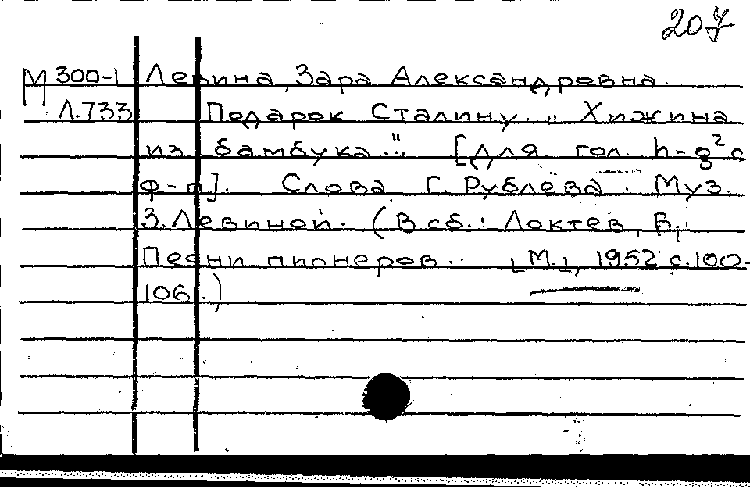 207
М 300-1 Левина, Зара Александровна.
Л.733 Подарок Сталину. „Хижина
из бамбука." [Для гол. h-g² с
ф-п]. Слова Г. Рублева. Муз.
З. Левиной. (В сб.: Локтев, В.
Песни пионеров. [М.], 1952 с. 100-
106.)